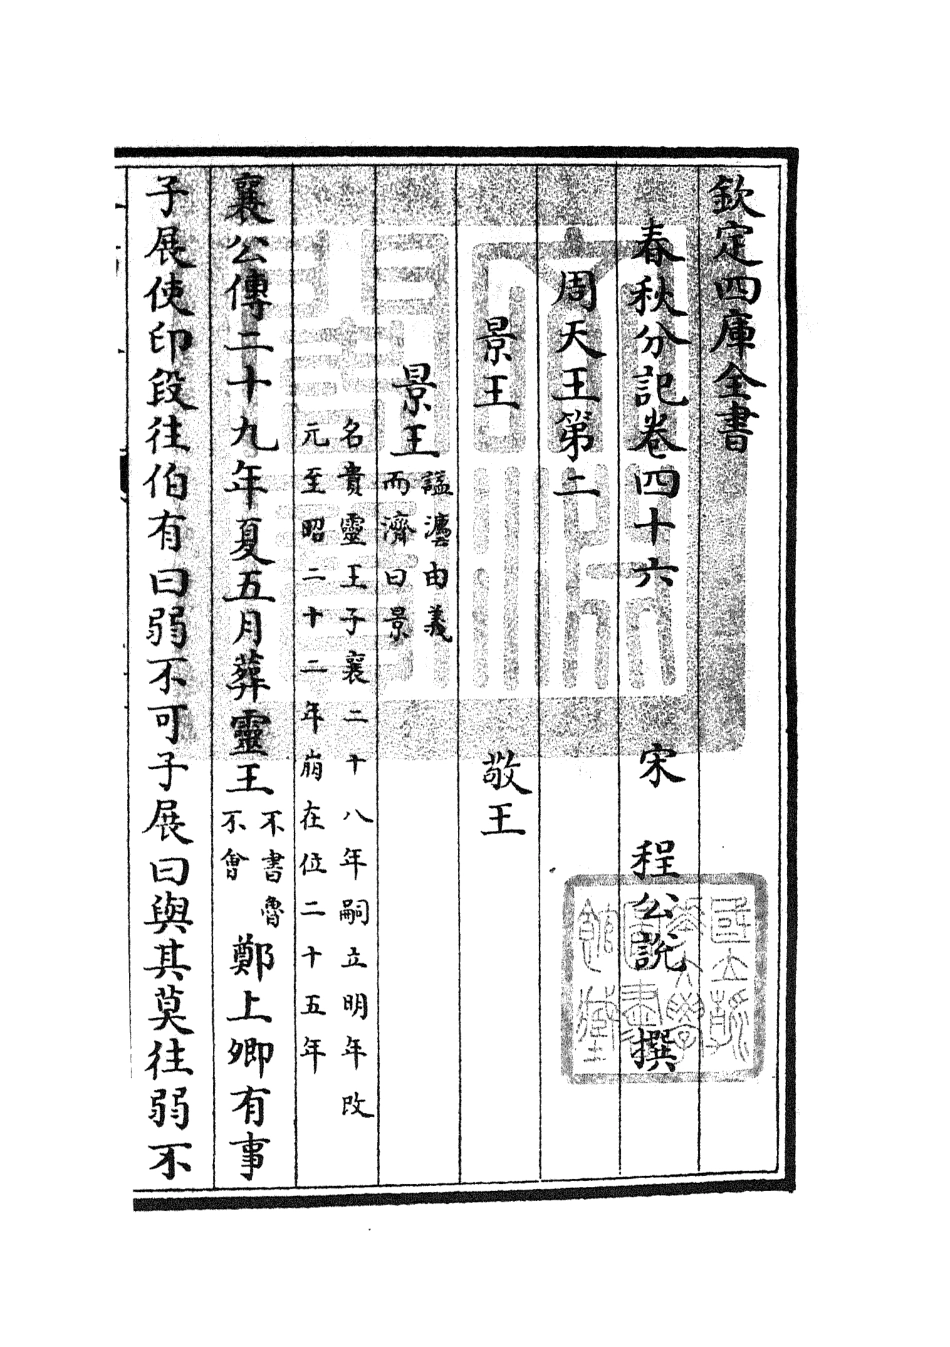 欽定四庫全書
春秋分記卷四十六 宋 程公說 撰
周天王第二
景王 敬王
景王 諡灋由義而濟曰景
名貴靈王子襄二十八年嗣立明年改
元至昭二十二年崩在位二十五年
襄公傳二十九年夏五月葬靈王 不書魯不會 鄭上卿有事
子展使印段往伯有曰弱不可子展曰與其莫往弱不